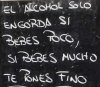 EL ALCOHOL SOLO
ENGORDA SI
BEBES POCO,
SI BEBES MUCHO
TE PONES FINO